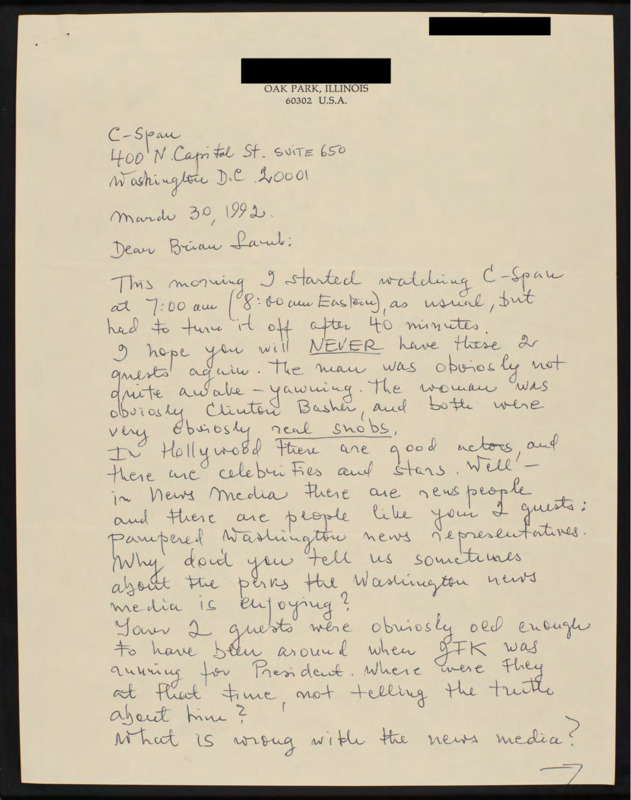 OAK PARK, ILLINOIS
60302 U.S.A.
C-Span
400 N. Capitol St. SUITE 650
Washington D.C. 20001
March 30, 1992.
Dear Brian Lamb:
This morning I started watching C-Span
at 7:00 am (8:00 am Eastern), as usual, but
had to turn it off after 40 minutes.
I hope you will NEVER have these 2
guests again. The man was obviously not
quite awake - yawning. The woman was
obviosly Clinton Basher, and both were
very obviosly real snobs.
In Hollywood there are good actors, and
there are celebrities and stars. Well -
in News Media there are newspeople
and there are people like your 2 guests:
pampered Washington news representatives.
Why don't you tell us sometimes
about the perks the Washington news
media is enjoying?
Your 2 guests were obviously old enough
to have been around when JFK was
running for President. Where were they
at that time, not telling the truth
about him?
What is wrong with the news media?
→